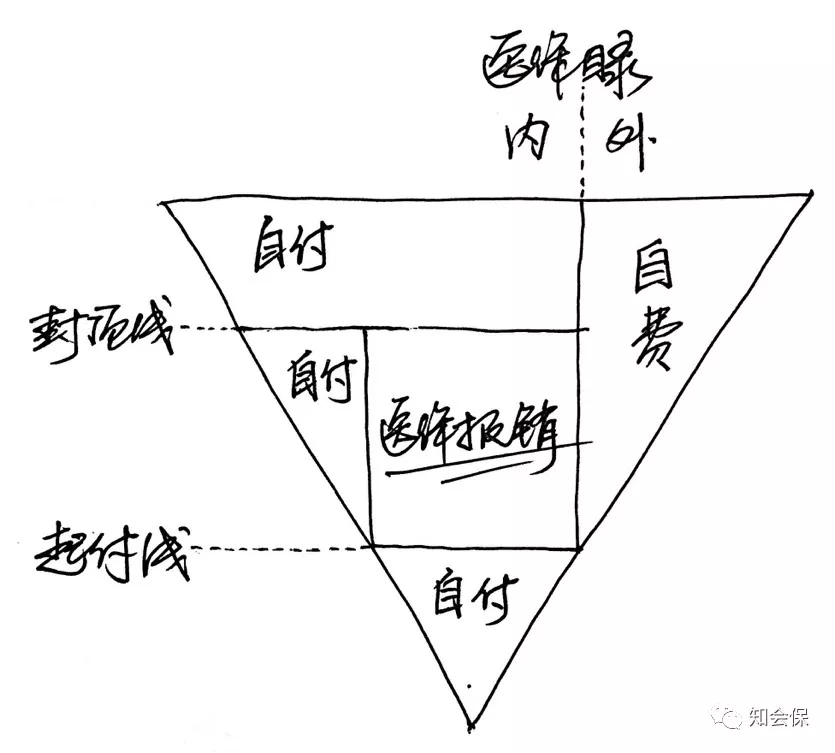 医保目录
内 外
自付
自费
封顶线
自付
医保报销
起付线
自付
知会保